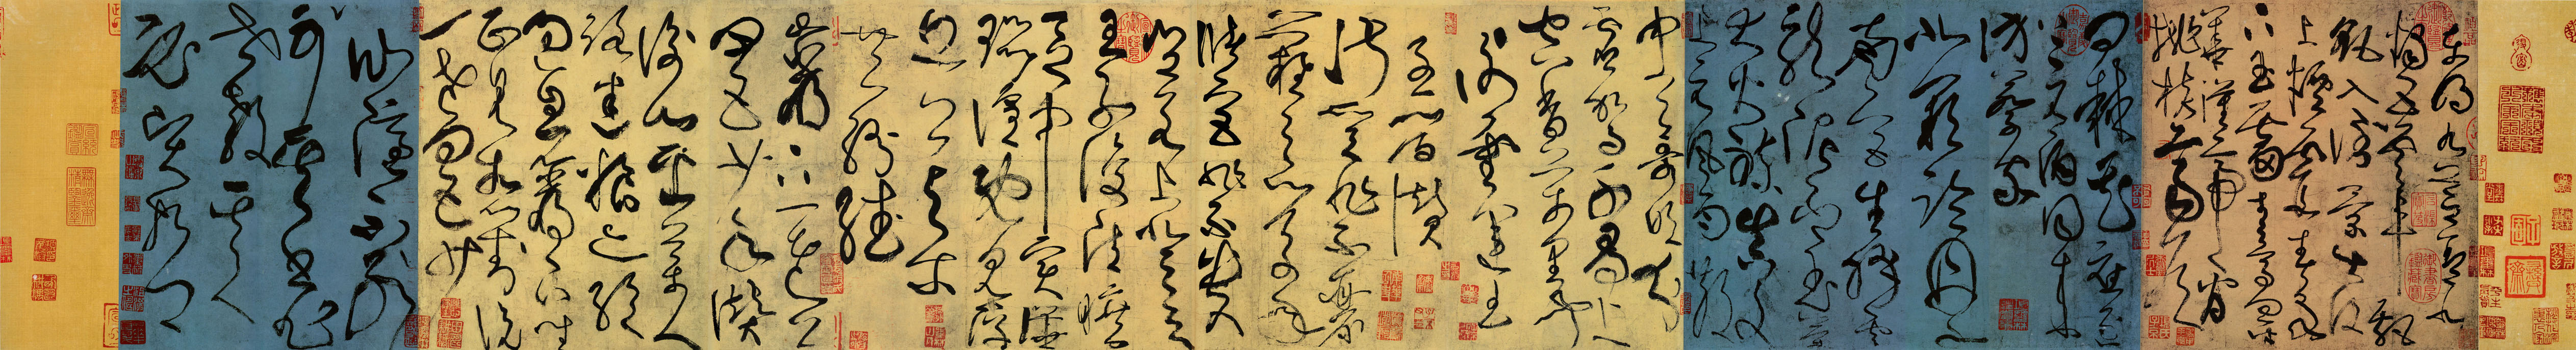 東明九芝蓋北
燭五雲車飄
飖入倒景出沒
上煙霞春泉
下玉霤青鳥向金
華漢帝看
桃核齊侯
問棗花應逐
上元酒同來
訪蔡家
北闕臨丹
水南宮生絳雲
龍泥印玉簡
大火練真文
上元風雨散
中天歌吹分
靈駕千尋上
空香萬里聞
謝靈運王
子晉贊
淑質非不麗
難以之百年
儲宮非不貴
豈若上登天
王子復清曠
區中實譁囂
喧既見浮
丘公與爾
共紛繙
巖下一老公
四五少年贊
衡山采藥人
路迷糧亦絕
過息巖下坐
正見相對說
一老四五少
仙隱不別
可其書非
世教其人
必賢哲